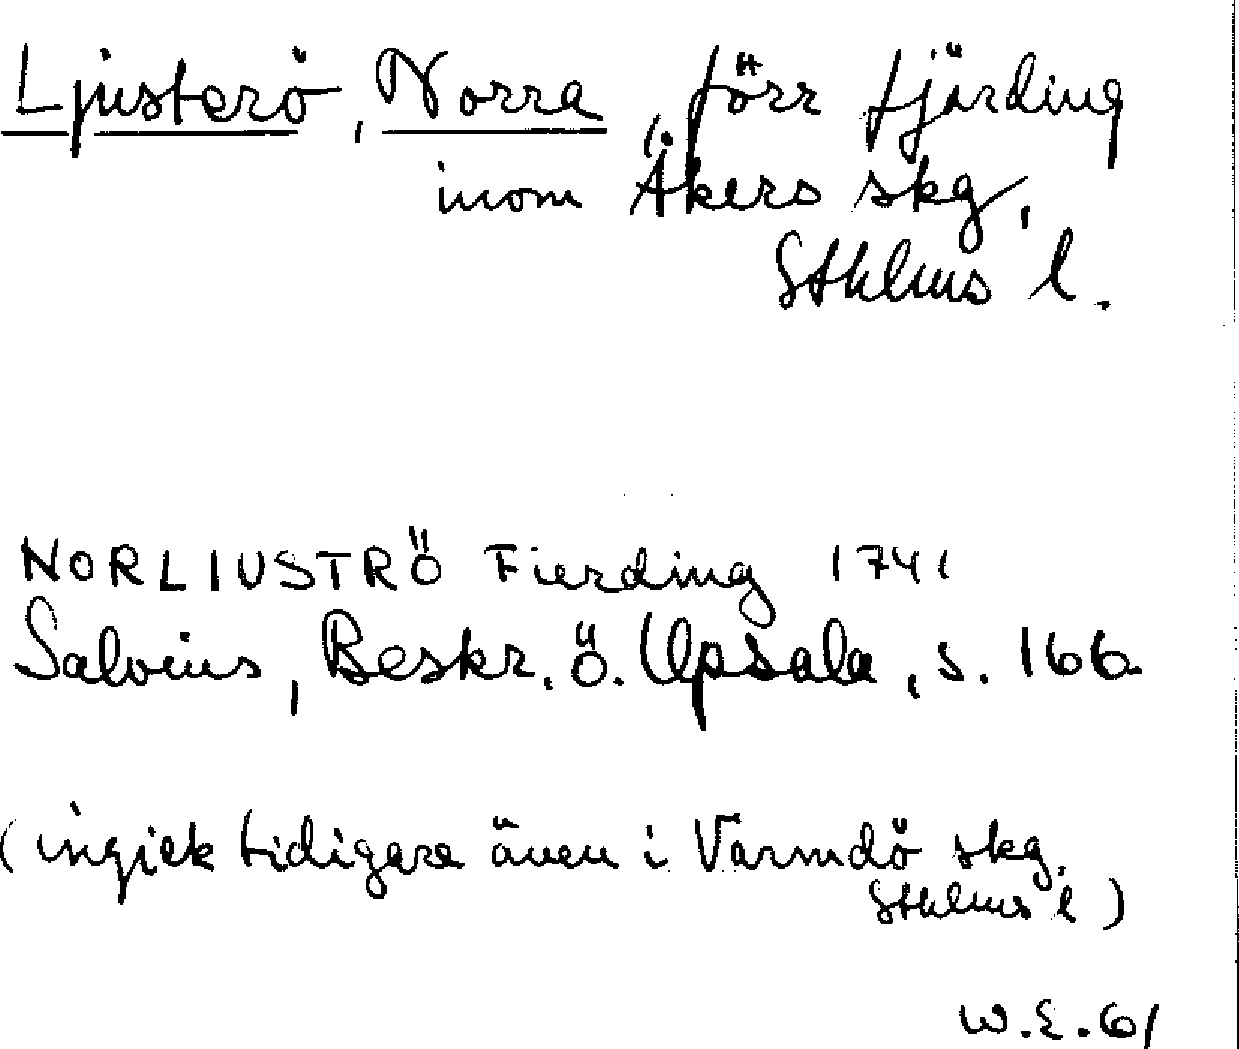 Ljusterö, Norra, förr fjärding
inom Åkers skg,
Sthlms l.
NORLIUSTRÖ Fierding 1741
Salvius, Beskr. ö. Upsala, s. 166
(ingick tidigare även i Värmdö skg.
Sthlms l)
W.E.61